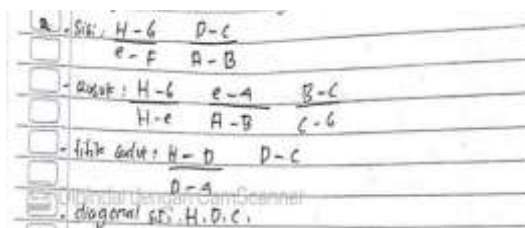 2. - Sisi : H - G   D - C
e - F   A - B
- Rusuk : H - G   e - A   B - C
H - e   A - B   C - G
- titik sudut : H - D   D - C
D - A
Dipindai dengan CamScanner
- diagonal sisi . H . D . C .